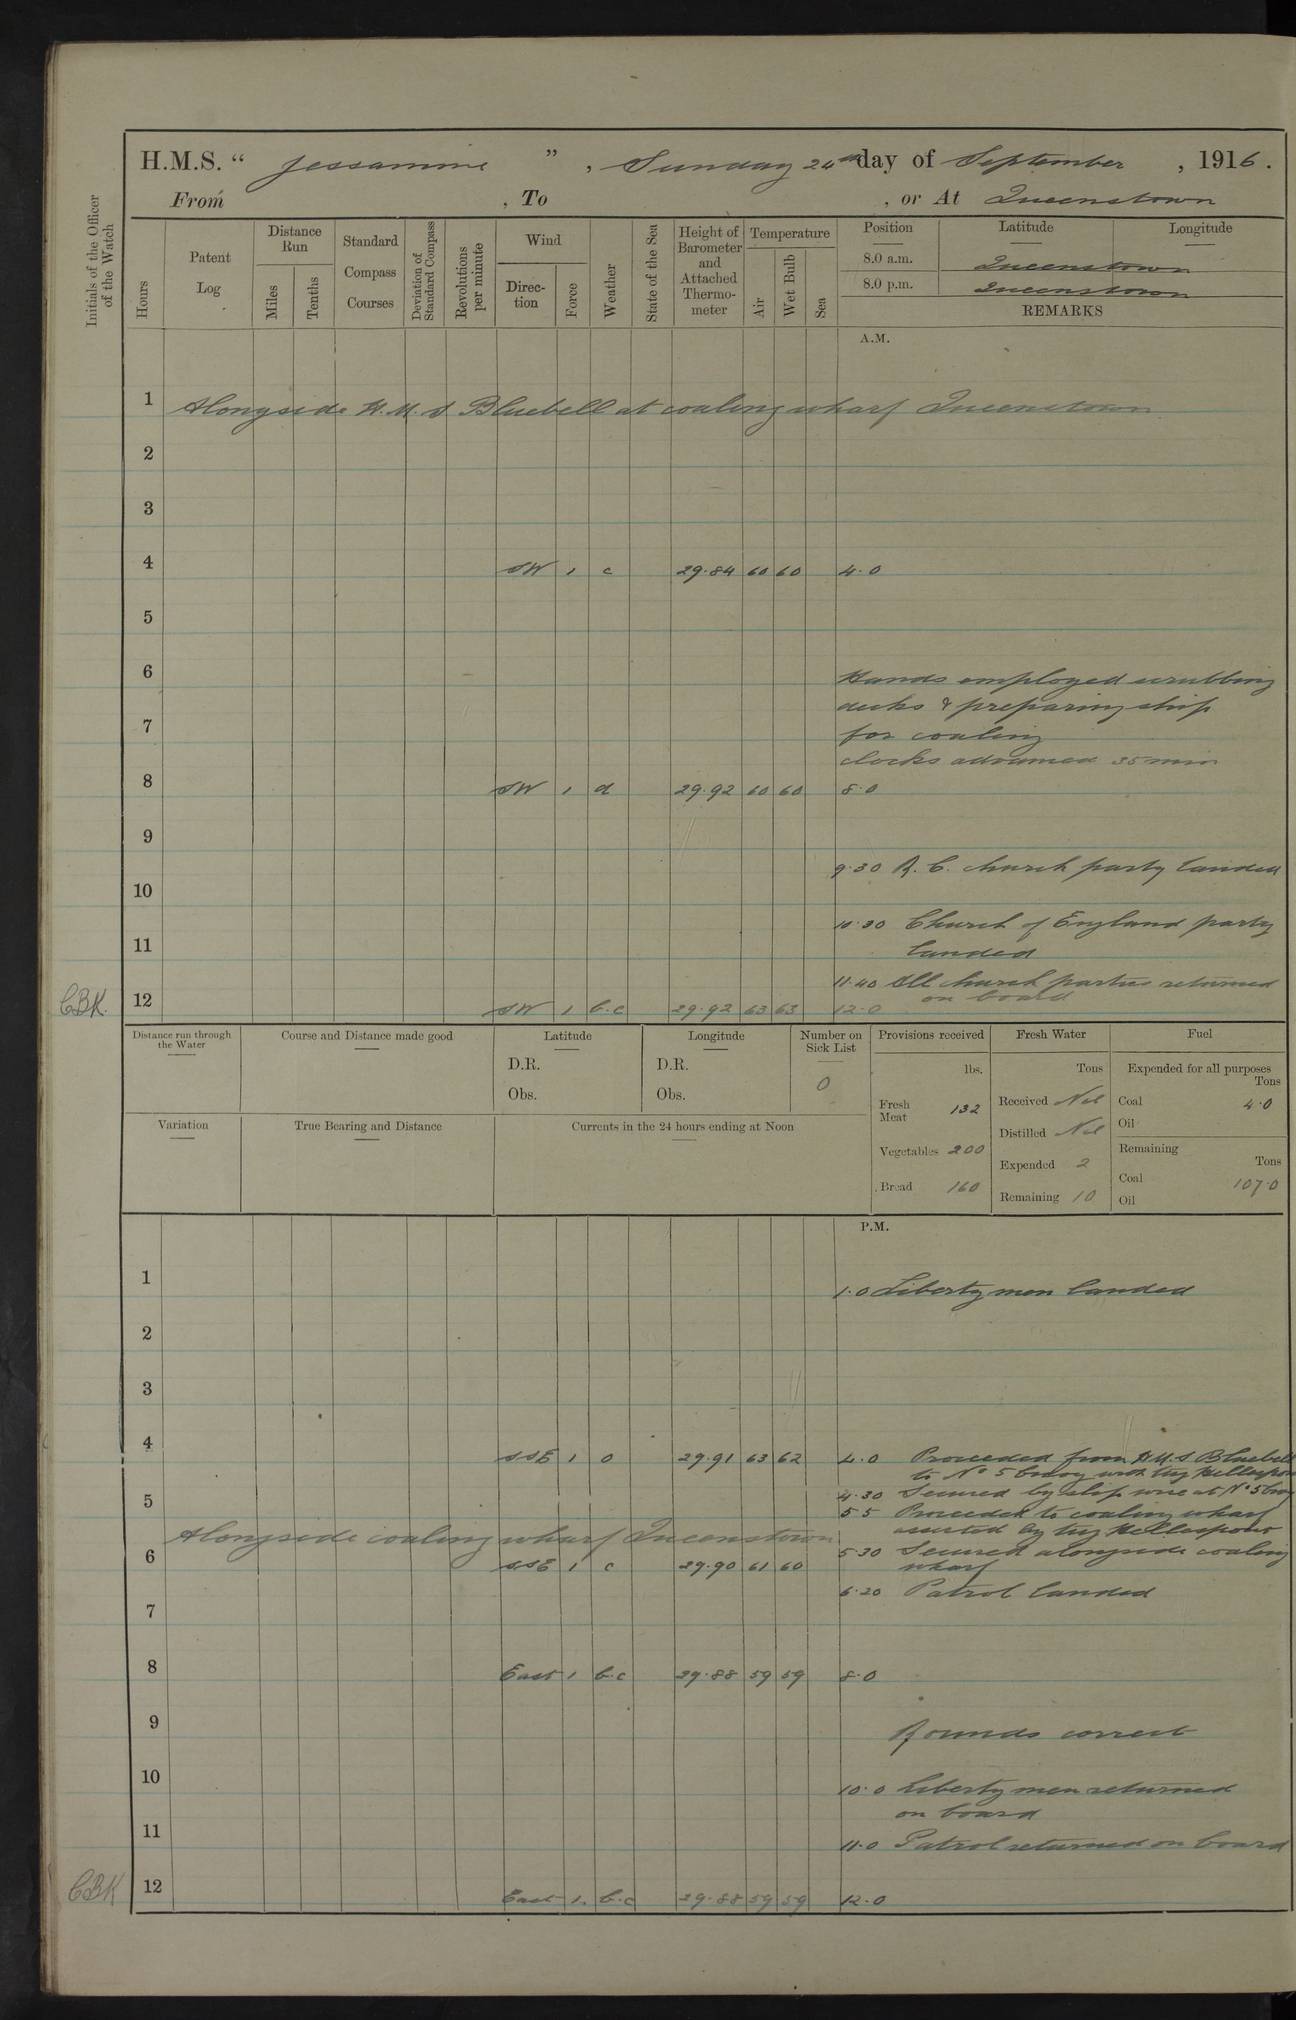 H.M.S. “ Jessamine ” , Sunday 24th day of September , 1916.
From , To , or At Queenstown
Initials of the Officer of the Watch
Hours
Patent Log
Distance Run
Miles
Tenths
Standard Compass Courses
Deviation of Standard Compass
Revolutions per minute
Wind
Direction
Force
Weather
State of the Sea
Height of Barometer and Attached Thermometer
Temperature
Air
Wet Bulb
Sea
Position Latitude Longitude
8.0 a.m. Queenstown
8.0 p.m. Queenstown
REMARKS
A.M.
1 Alongside H.M.S Bluebell at coaling wharf Queenstown
2
3
4 SW 1 c 29.84 60 60 4.0
5
6 Hands employed scrubbing
decks & preparing ship
7 for coaling
clocks advanced 35 min
8 SW 1 d 29.92 60 60 8.0
9
9.30 R.C. church party landed
10
10.30 Church of England party
11 landed
11.40 All church parties returned
on board
CBK. 12 SW 1 b.c 29.92 63 63 12.0
Distance run through the Water
Course and Distance made good
Latitude
D.R.
Obs.
Longitude
D.R.
Obs.
Number on Sick List
0
Provisions received
lbs.
Fresh Meat 132
Vegetables 200
Bread 160
Fresh Water
Tons
Received Nil
Distilled Nil
Expended 2
Remaining 10
Fuel
Expended for all purposes
Tons
Coal 4.0
Oil
Remaining
Tons
Coal 107.0
Oil
Variation
True Bearing and Distance
Currents in the 24 hours ending at Noon
P.M.
1 1.0 Liberty men landed
2
3
4 SSE 1 o 29.91 63 62 4.0 Proceeded from H.M.S Bluebell
to No 5 buoy with tug Hellespont
4.30 Secured by slip wire at No 5 buoy
5 5.5 Proceeded to coaling wharf
assisted by tug Hellespont
Alongside coaling wharf Queenstown
5.30 Secured alongside coaling
6 SSE 1 c 29.90 61 60 wharf
6.20 Patrol landed
7
8 East 1 b.c 29.88 59 59 8.0
9 Rounds correct
10 10.0 Liberty men returned
on board
11 11.0 Patrol returned on board
CBK 12 East 1. b.c 29.88 59 59 12.0